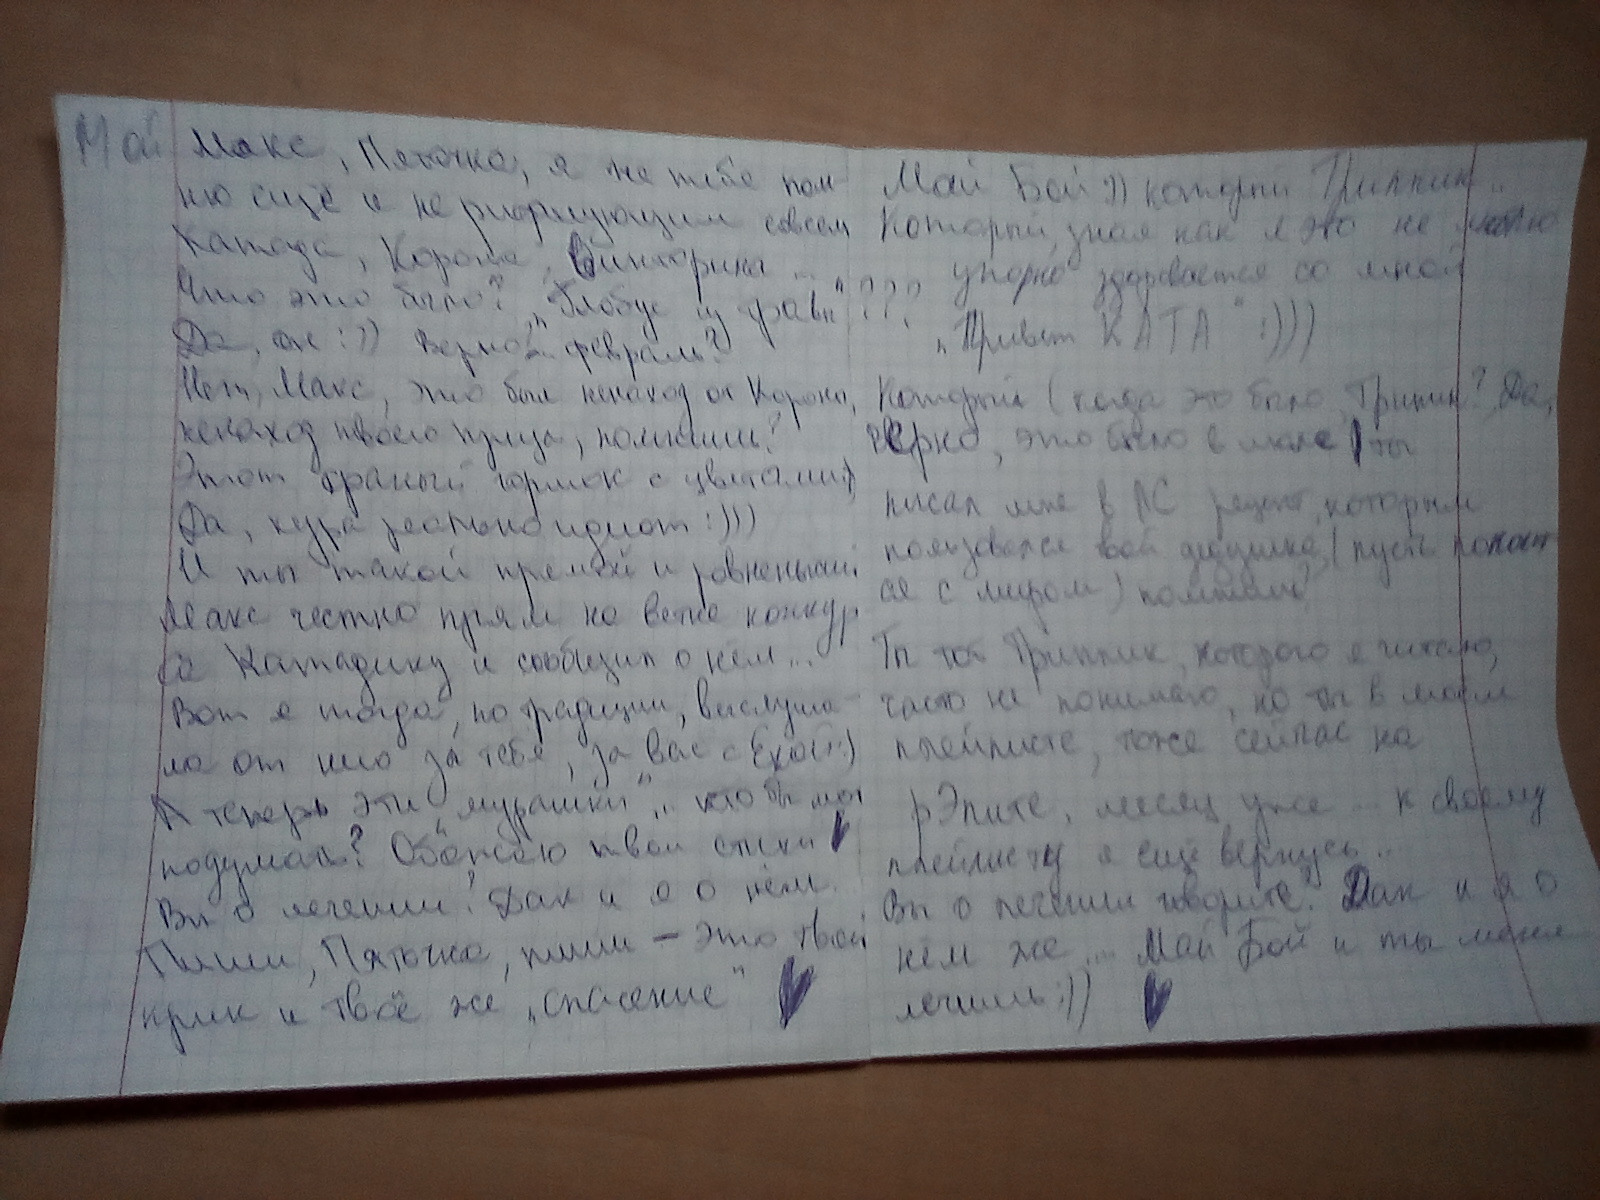 Мой Макс, Пяточка, я же тебя пом-
ню ещё и не рифмующим совсем
Катада, Корона, Викторина ...
Что это было? „Глобус из фавн" ???
Да, он :)) Верно? февраль?)
Нет, Макс, это был ненаход от Короны,
ненаход твоего пупца, помнишь?
Этот сраный горшок с цветами)
Да, кура реально идиот :)))
И ты такой прямой и ровненький
Макс честно прям на ветке конкур
са Катадику и сообщил о нём ...
Вот я тогда, по традиции, выслуша-
ла от него за тебя, за вас с Ехой:)
А теперь эти „мурашки"... кто бы мог
подумать? Обожаю твои стихи
Вы о лечении? Дак и я о нём.
Пиши, Пяточка, пиши – это твой
крик и твоё же „спасение"
Мой Бой )) который Триппик..
Который, зная как я это не люблю
упорно здоровается со мной
„Привет КАТА" :)))
Который (когда это было, Триппик? Да,
верно, это было в мае) ты
писал мне в ЛС рецепт, которым
пользовался твой дедушка, (пусть покоит
ся с миром) помнишь?
Ты тот Триппик, которого я читаю,
часто не понимаю, но ты в моём
плейлисте, тоже сейчас на
рЭпите, месяц уже ... к своему
плейлисту я ещё вернусь ...
Вы о лечении говорите? Дак и я о
нём же ... Мой Бой и ты меня
лечишь :))